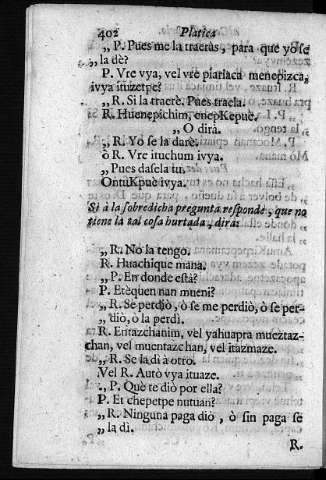 402 Platica
„ P. Pues me la traerùs, para que yo se
„ la dè?
P. Vre vya, vel vrè piarlacù menepizca,
ivya ituizetpe?
„ R. Si la traerè. Pues traela.
R. Huenepichim, enepKepuè.
„ O dirà.
„ R. Yo se la darè.
ò R. Vre ituchum ivya.
„ Pues dasela tu.
OntuKpuè ivya.
Si à la sobredicha pregunta responde, que no
tiene la tal cosa hurtada, dirà:
„ R. No la tengo.
R. Huachique mana.
„ P. En donde està?
P. Etèquen nan mueni?
„ R. Se perdiò, ò se me perdiò, ò se per-
„ diò, ò la perdì.
R. Entazchanim, vel yahuapra mueztaz-
han, vel muentazchan, vel itazmaze.
„ R. Se la dì à otro.
Vel R. Autò vya ituaze.
„ P. Què te diò por ella?
P. Et chepetpe nutuan?
„ R. Ninguna paga diò, ò sin paga se
„ la dì.
R.